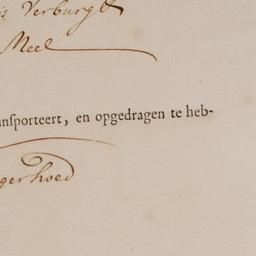 is Verburgh
Meel
ansporteert, en opgedragen te heb-
gerhoed